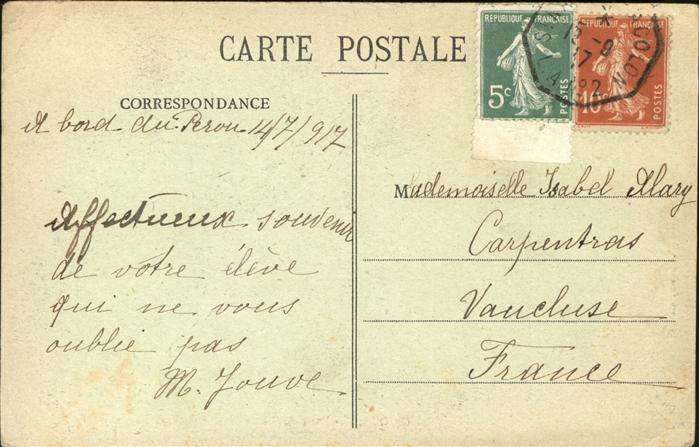 CARTE POSTALE
REPUBLIQUE FRANÇAISE
5c
POSTES
REPUBLIQUE FRANÇAISE
10c
POSTES
COLON
CORRESPONDANCE
A bord du Perou 14/7/917
Affectueux souvenir
de votre élève
qui ne vous
oublie pas
M. Jouve
Mademoiselle Isabel Alary
Carpentras
Vaucluse
France